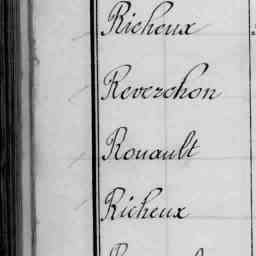 Richeux
Reverchon
Rouault
Richeux